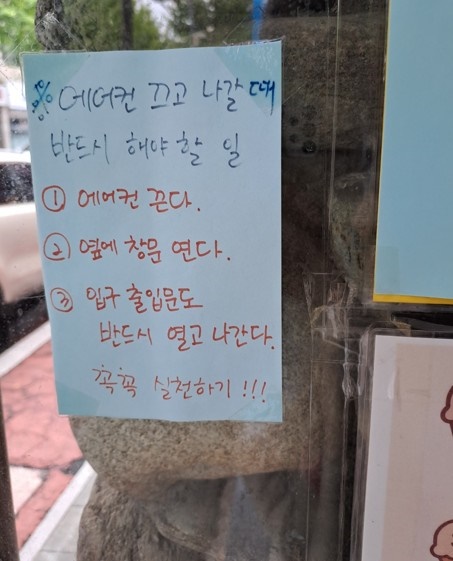 ※ 에어컨 끄고 나갈 때
반드시 해야 할 일
① 에어컨 끈다.
② 옆에 창문 연다.
③ 입구 출입문도
반드시 열고 나간다.
꼭꼭 실천하기!!!